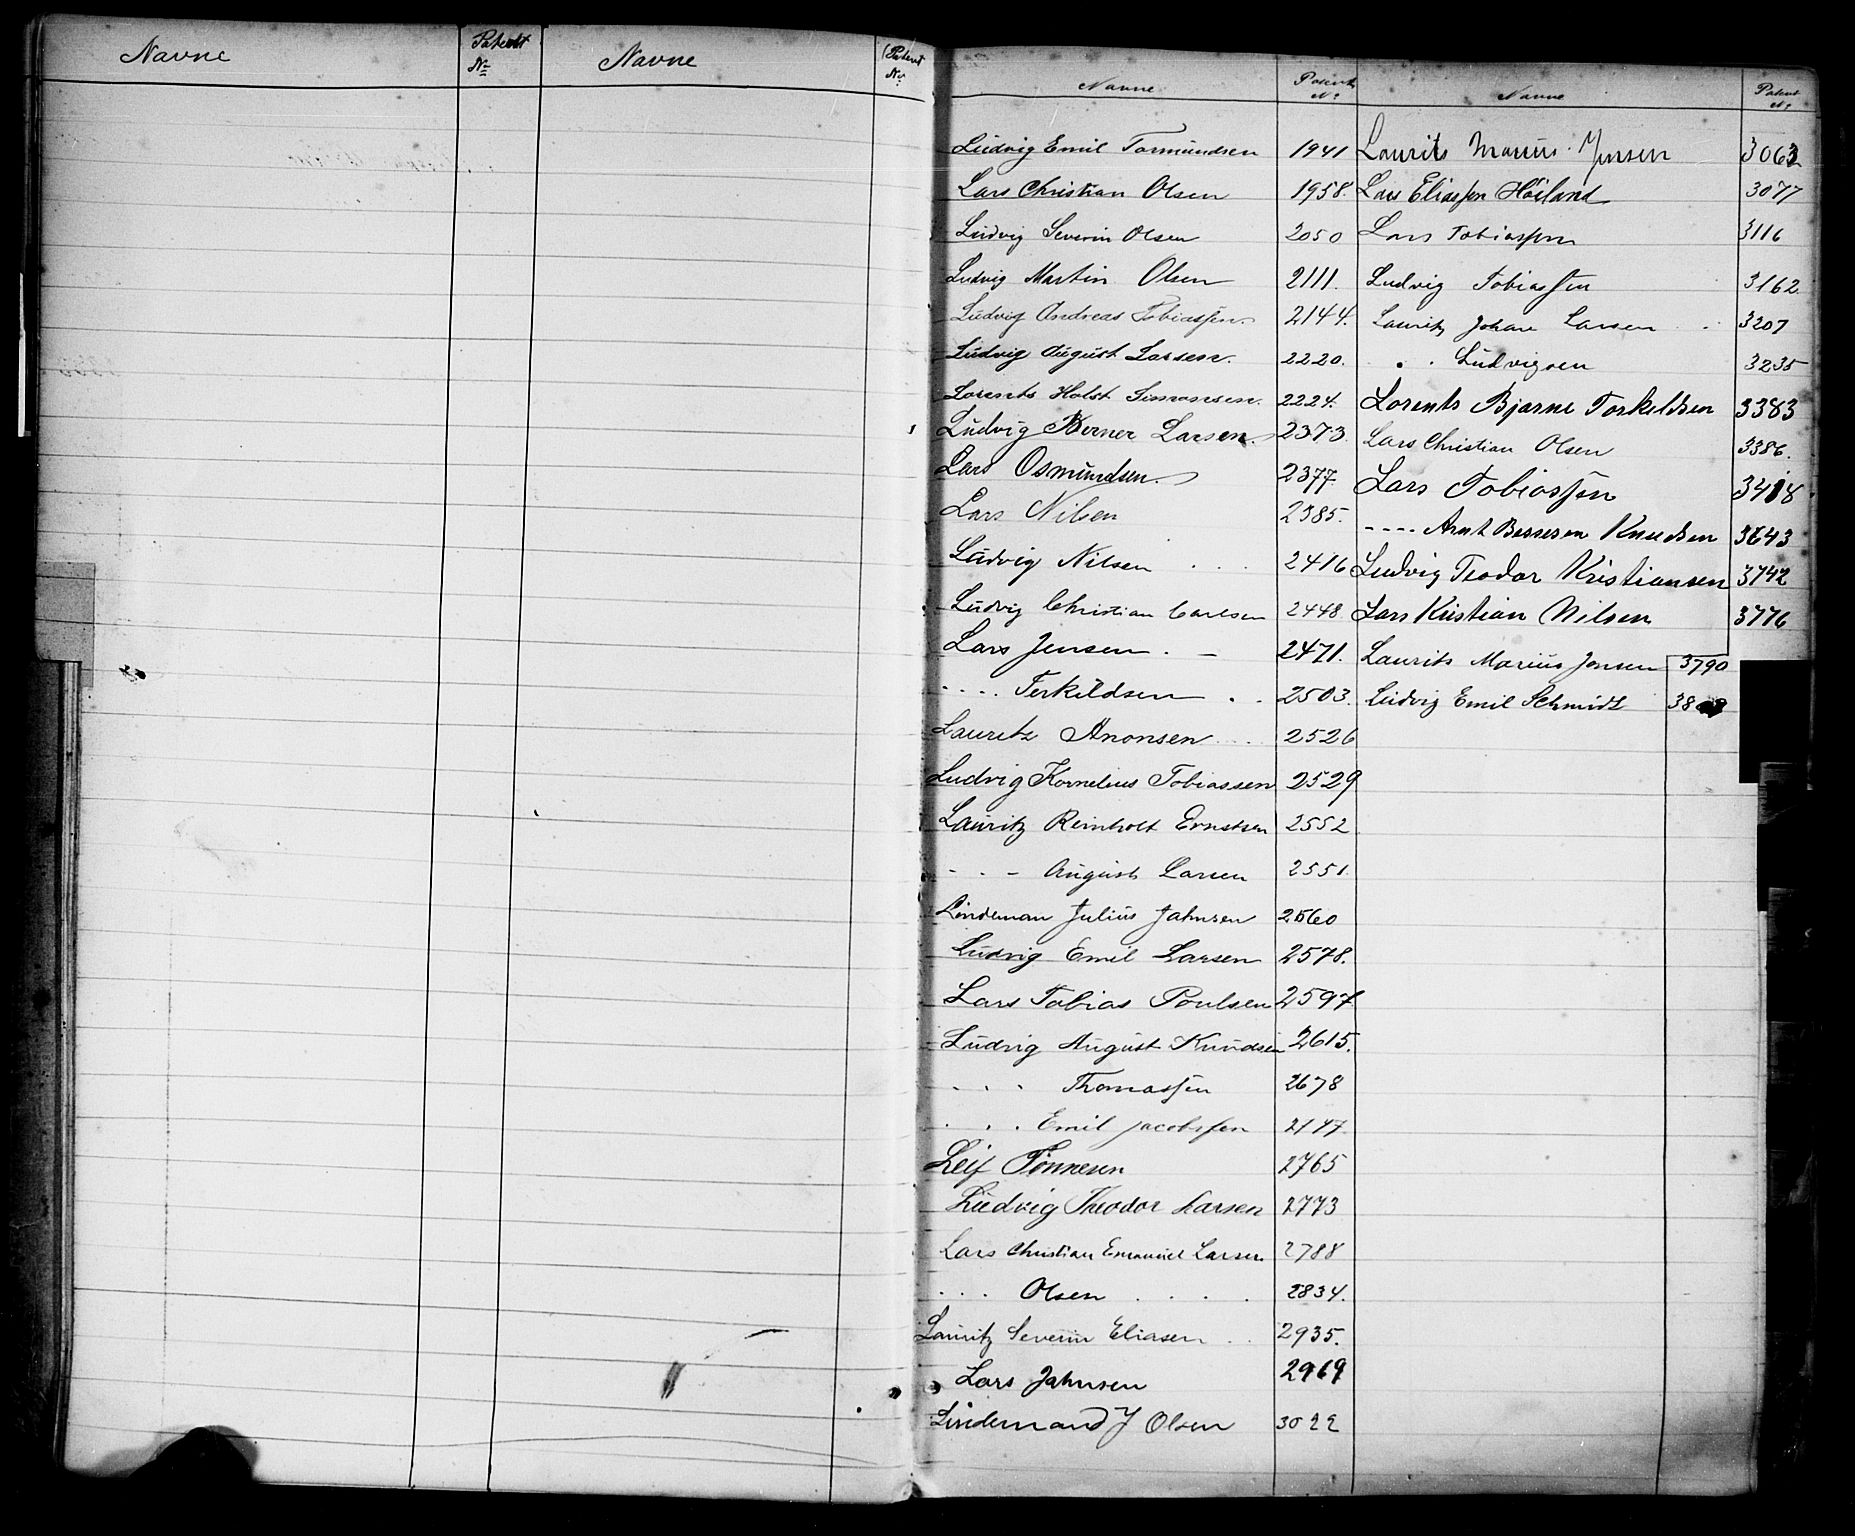 Navne
Patent
No
Navne
Patent
No
Navne
Patent
No
Ludvig Emil Tormundsen 1941
Lars Christian Olsen 1958.
Ludvig Severin Olsen 2050
Ludvig Martin Olsen 2111.
Ludvig Andreas Tobiassen. 2144.
Ludvig August Larsen. 2220.
Lorents Holst Simonsen. 2224.
Ludvig Berner Larsen. 2373.
Lars Osmundsen. 2377.
Lars Nilsen 2385.
Ludvig Nilsen . . . 2416
Ludvig Christian Carlsen 2448.
Lars Jensen . — 2471.
.... Terkildsen . . 2503.
Lauritz Anonsen . . 2526
Ludvig Kornelius Tobiassen 2529
Lauritz Reinholt Ernstsen 2552
- - - August Larsen 2551.
Lindeman Julius Jahnsen 2560
Ludvig Emil Larsen 2578.
Lars Tobias Poulsen 2597
Ludvig August Knudsen 2615.
. . . Thomassen 2678
. . . Emil Jacobssen 2747
Leif Tønnesen 2765
Ludvig Theodor Larsen 2773
Lars Christian Emanuel Larsen 2788
. . . Olsen . . . . 2834.
Lauritz Severin Eliasen . . 2935.
Lars Jahnsen 2969
Lindemand J Olsen 3022
Navne
Patent
No
Laurits Marius Jensen 3063
Lars Eliassen Höiland 3077
Lars Tobiassen 3116
Ludvig Tobiassen 3162.
Lauritz Johan Larsen . . 3207
. . Ludvigsen 3235
Lorents Bjarne Torkeldsen 3383
Lars Christian Olsen 3386.
Lars Tobiassen 3418
---- Arnt Bessesen Knudsen 3643
Ludvig Teodor Kristiansen 3742
Lars Kristian Nilsen 3776
Laurits Marius Jensen 3790
Ludvig Emil Schmidt